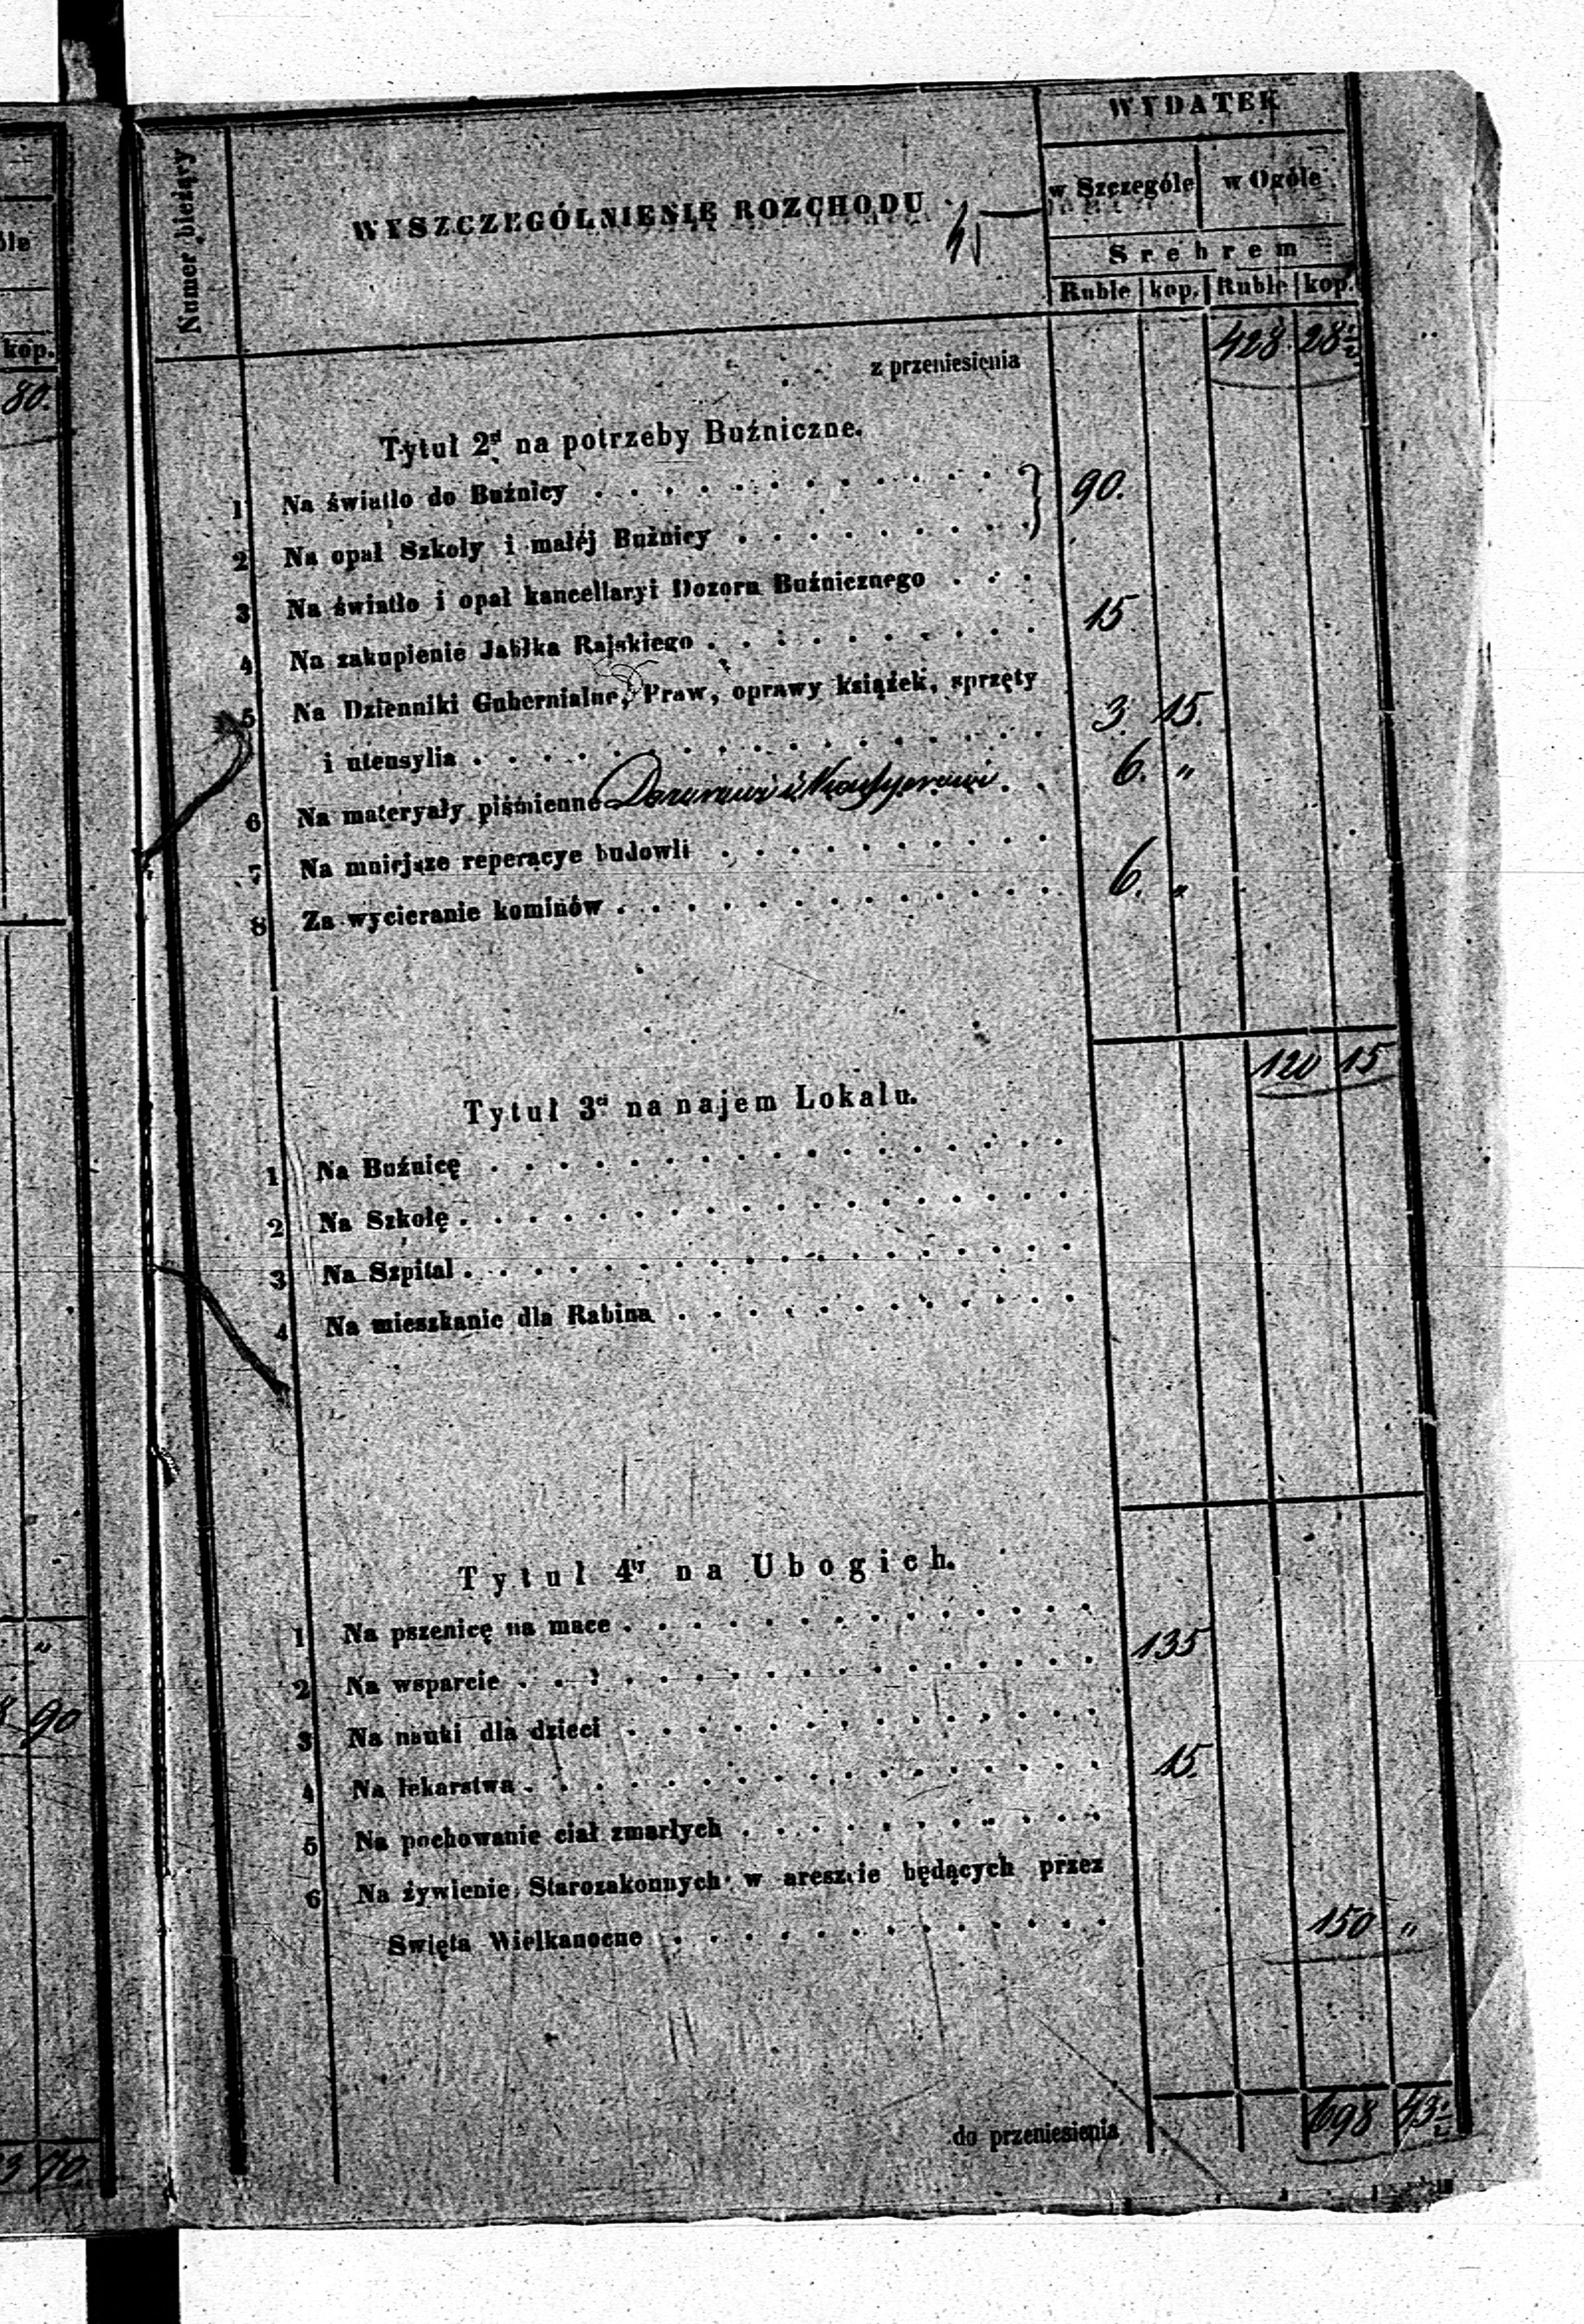 Numer bieżący
WYSZCZEGÓLNIENIE ROZCHODU
WYDATEK
w Szczególe w Ogóle
Srebrem
Ruble kop. Ruble kop.
z przeniesienia 428 28½
Tytuł 2gi na potrzeby Buźniczne.
1 Na światło do Buźnicy } 90.
2 Na opał Szkoły i małéj Buźnicy
3 Na światło i opał kancellaryi Dozoru Buźnicznego
4 Na zakupienie Jabłka Rajskiego 15
5 Na Dzienniki Gubernialne, Praw, oprawy książek, sprzęty
i utensylia 3 15.
6 Na materyały piśmienne Dozorowi i Kassyerowi 6. "
7 Na mniejsze reperacye budowli
8 Za wycieranie kominów 6. "
120 15
Tytuł 3ci na najem Lokalu.
1 Na Buźnicę
2 Na Szkołę
3 Na Szpital
4 Na mieszkanie dla Rabina
Tytuł 4ty na Ubogich.
1 Na pszenicę na mace
2 Na wsparcie 135
3 Na nauki dla dzieci
4 Na lekarstwa 15.
5 Na pochowanie ciał zmarłych
6 Na żywienie Starozakonnych w areszcie będących przez
Święta Wielkanocne
150 "
do przeniesienia 698 43½
kop.
80.
"
90
70